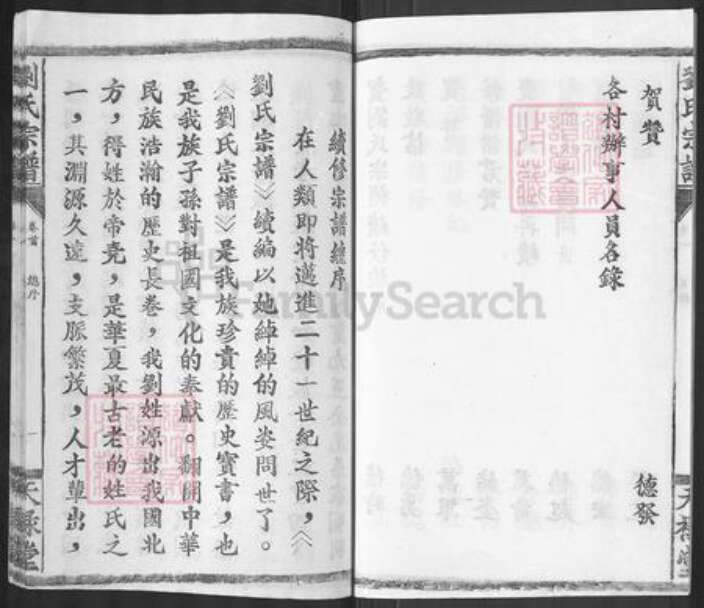 賀贊
德發
各村辦事人員名錄
劉氏宗譜
卷首
總序
天祿堂
續修宗譜總序
在人類即將邁進二十一世紀之際，《
劉氏宗譜》續編以她綽綽的風姿問世了。
《劉氏宗譜》是我族珍貴的歷史寶書，也
是我族子孫對祖國文化的奉獻。翻開中華
民族浩瀚的歷史長卷，我劉姓源出我國北
方，得姓於帝堯，是華夏最古老的姓氏之
一，其淵源久遠，支脈繁茂，人才輩出，
FamilySearch